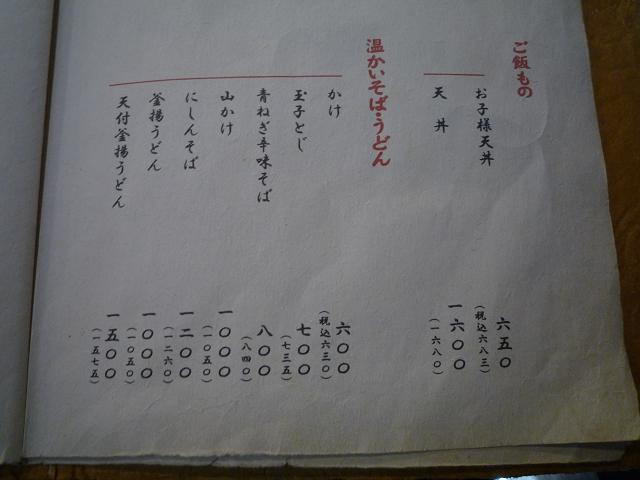 ご飯もの
お子様天丼
六五〇
(税込六八三)
天丼
一六〇〇
(一六八〇)
温かいそば・うどん
かけ
六〇〇
(税込六三〇)
玉子とじ
七〇〇
(七三五)
青ねぎ辛味そば
八〇〇
(八四〇)
山かけ
一〇〇〇
(一〇五〇)
にしんそば
一二〇〇
(一二六〇)
釜揚うどん
一〇〇〇
(一〇五〇)
天付釜揚うどん
一五〇〇
(一五七五)